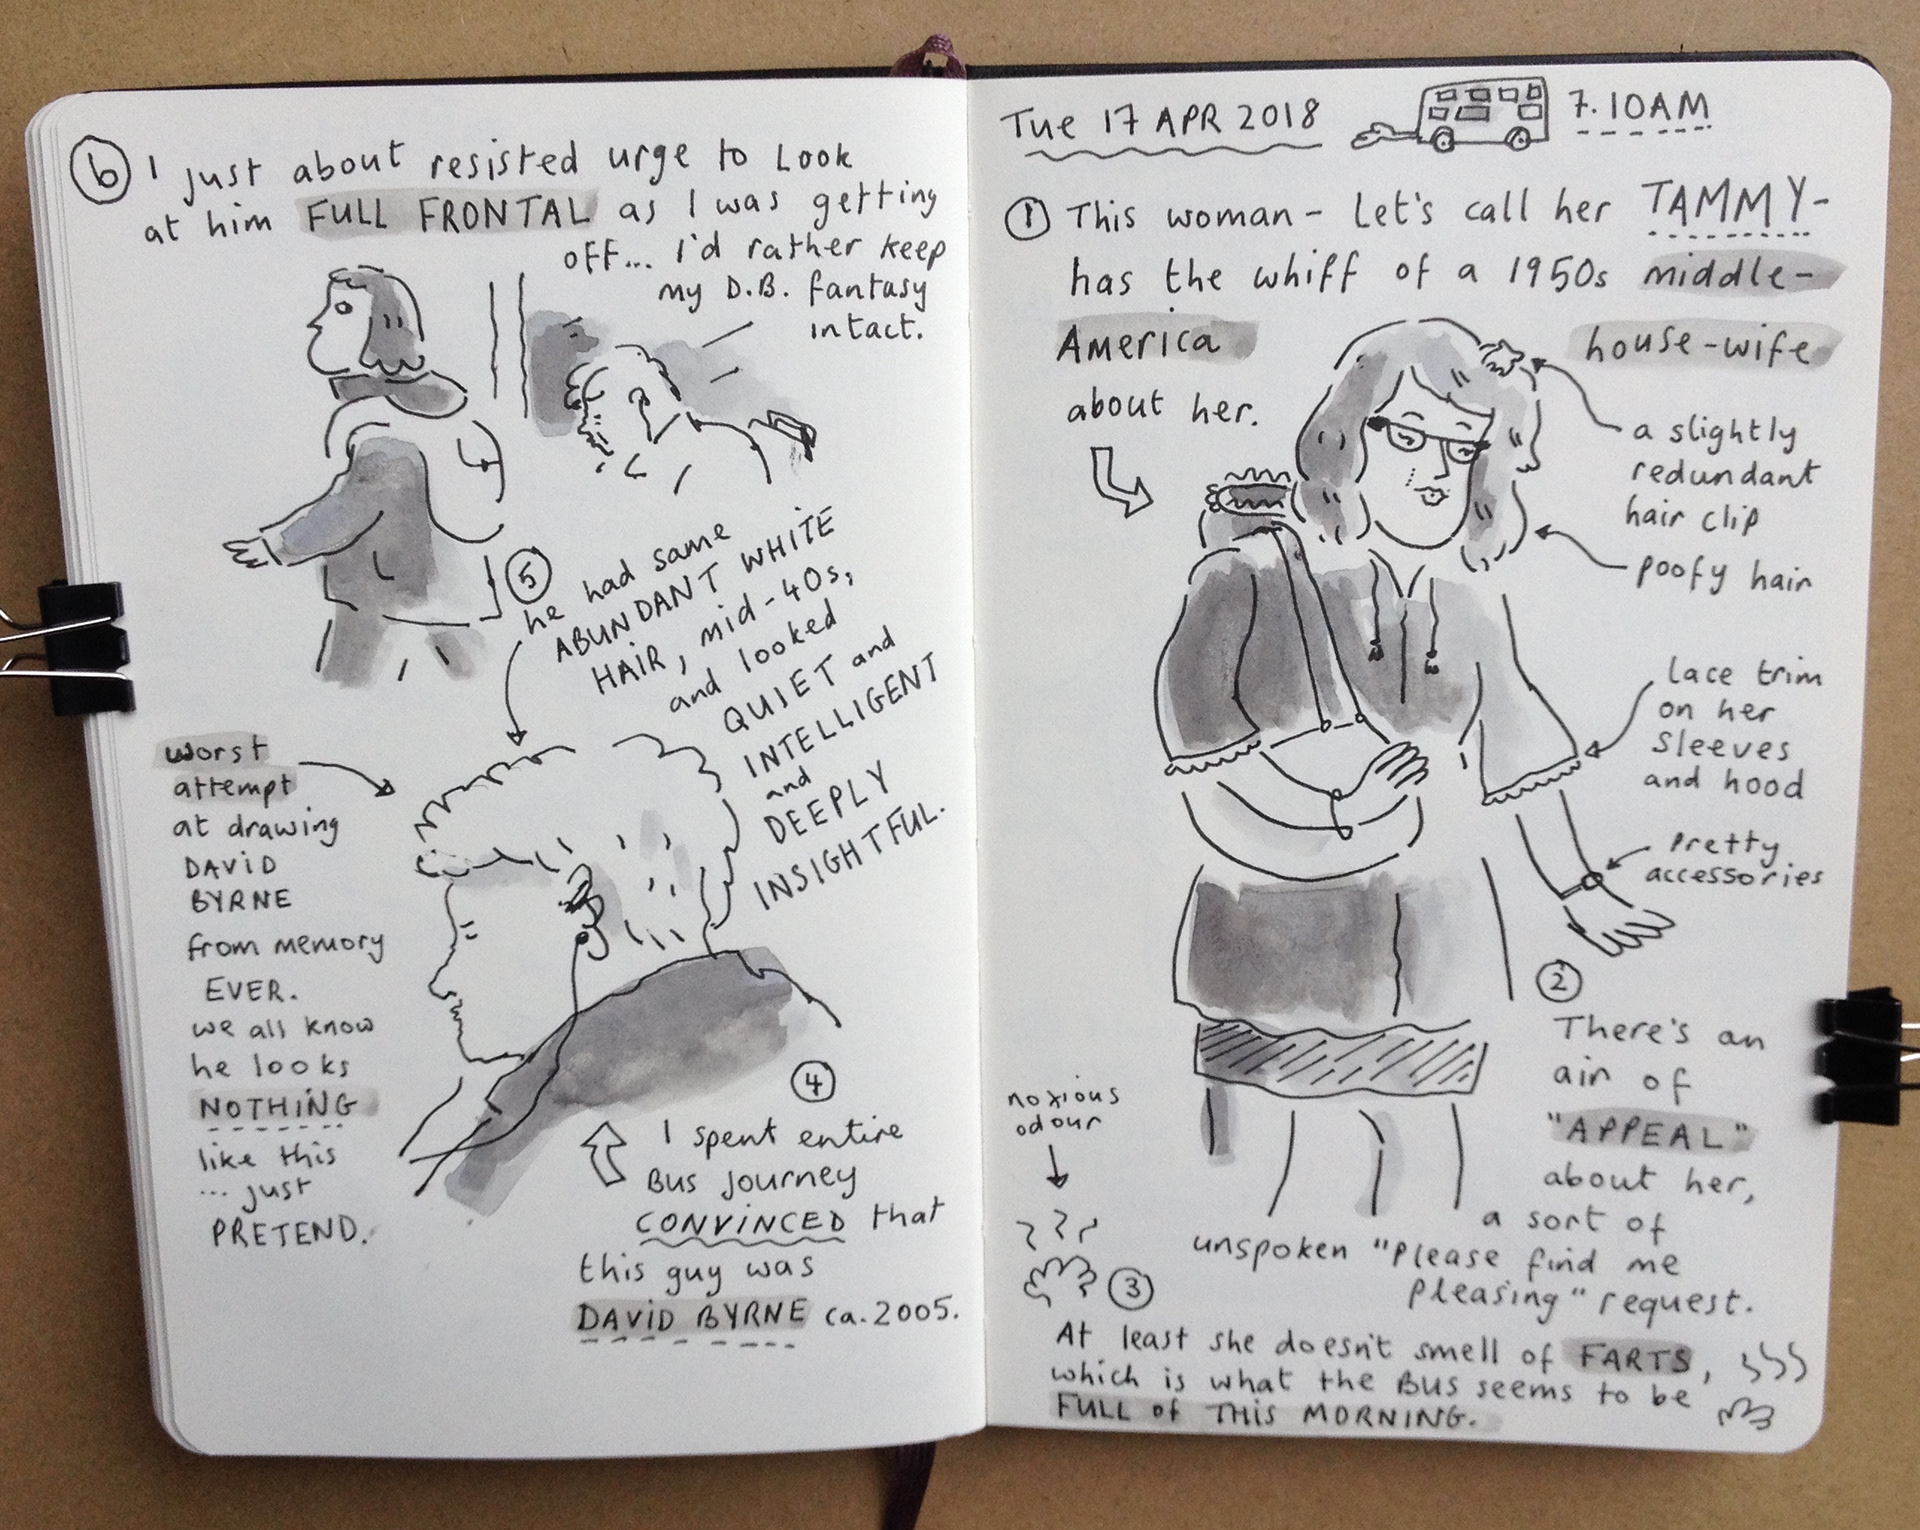 6 I just about resisted urge to look
at him FULL FRONTAL as I was getting
off... I'd rather keep
my D.B. fantasy
intact.
5
he had same
ABUNDANT WHITE
HAIR, mid-40s,
and looked
QUIET and
INTELLIGENT
and
DEEPLY
INSIGHTFUL.
worst
attempt
at drawing
DAVID
BYRNE
from memory
EVER.
we all know
he looks
NOTHING
like this
... just
PRETEND.
4
I spent entire
Bus journey
CONVINCED that
this guy was
DAVID BYRNE ca. 2005.
Tue 17 APR 2018 7.10AM
1 This woman - Let's call her TAMMY-
has the whiff of a 1950s middle-
America house-wife
about her.
a slightly
redundant
hair clip
poofy hair
lace trim
on her
sleeves
and hood
pretty
accessories
2
There's an
air of
"APPEAL"
about her,
a sort of
unspoken "please find me
pleasing" request.
noxious
odour
3
At least she doesn't smell of FARTS,
which is what the BUS seems to be
FULL of THIS MORNING.